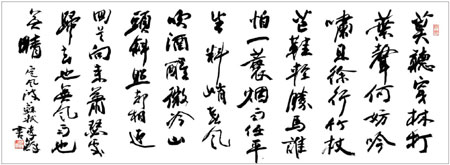 莫聽穿林打
葉聲何妨吟
嘯且徐行竹杖
芒鞋輕勝馬誰
怕一蓑烟雨任平
生料峭春風
吹酒醒微冷山
頭斜照却相迎
回首向來蕭瑟處
歸去也無風雨也
無晴
定風波蘇軾
書